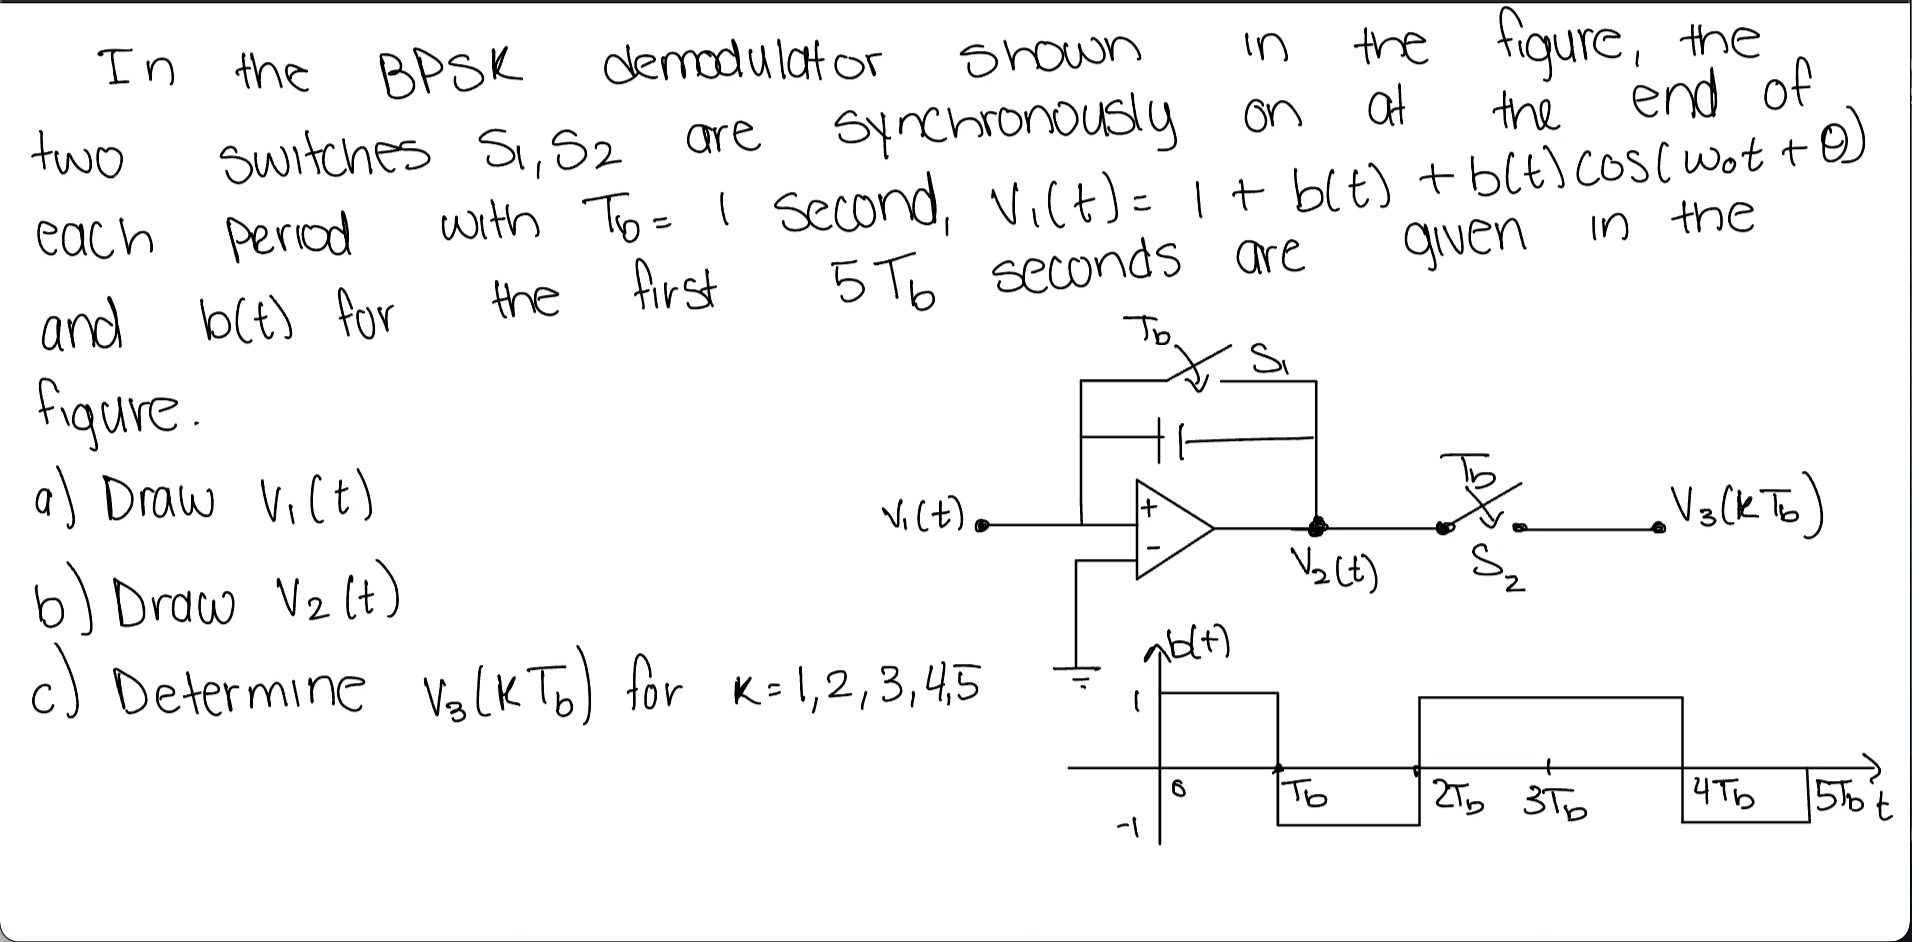 In the BPSK demodulator shown in the figure, the
two switches S1, S2 are synchronously on at the end of
each period with Tb = 1 second, V1(t) = 1 + b(t) + b(t) cos(w0t + θ)
and b(t) for the first 5Tb seconds are given in the
figure.
a) Draw V1(t)
b) Draw V2(t)
c) Determine V3(kTb) for k = 1,2,3,4,5
Tb S1
+
-
V1(t)
V2(t)
Tb
S2
V3(kTb)
b(t)
1
-1
0 Tb 2Tb 3Tb 4Tb 5Tb t